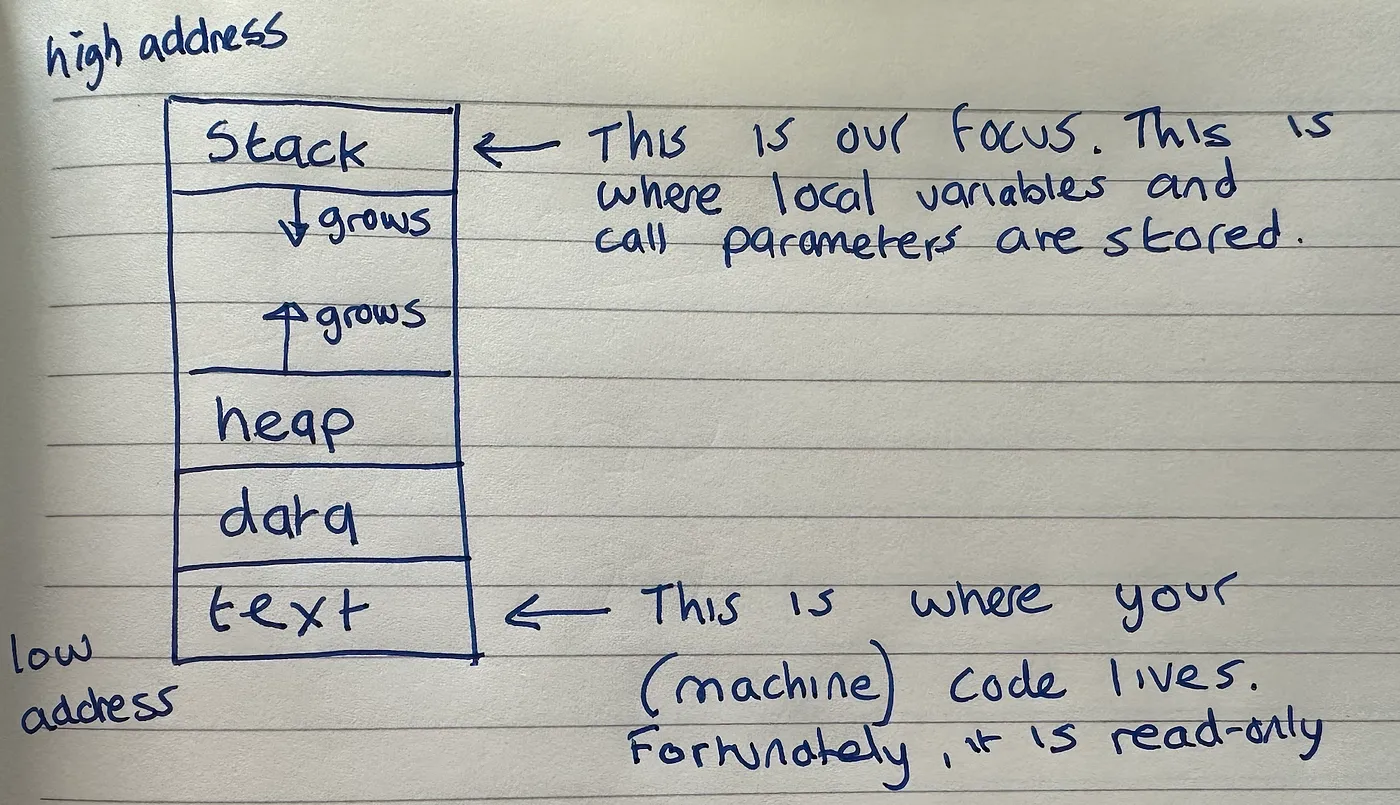 high address
Stack
← This is our focus. This is
where local variables and
call parameters are stored.
↓ grows
↑ grows
heap
data
text
← This is where your
(machine) code lives.
Fortunately, it is read-only
low
address